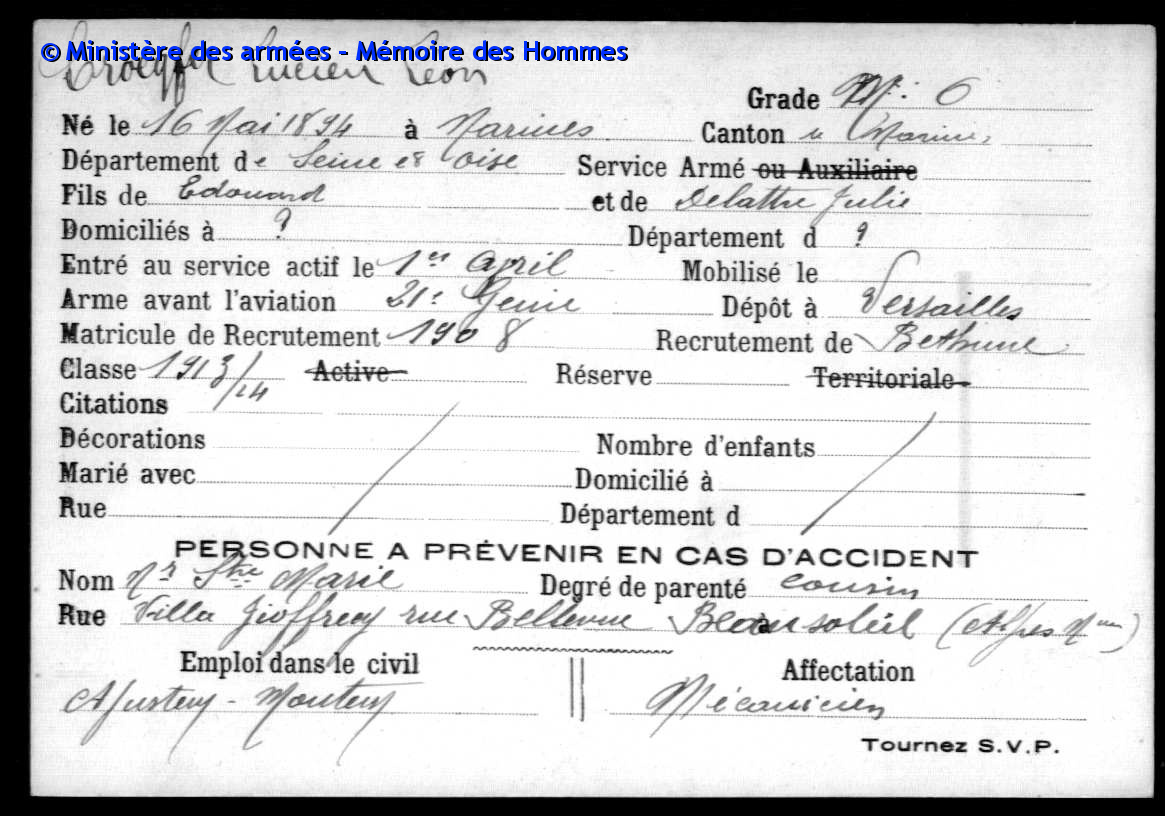 © Ministère des armées - Mémoire des Hommes
Lucien Léon
Grade Mr: 6
Né le 16 Mai 1894 à Marines Canton u Marines
Département de Seine et Oise Service Armé ou Auxiliaire
Fils de Edouard et de Delattre Julie
Domiciliés à ? Département d ?
Entré au service actif le 1er April Mobilisé le
Arme avant l'aviation 21e Génie Dépôt à Versailles
Matricule de Recrutement 1908 Recrutement de Bethune
Classe 1913/14 Active Réserve Territoriale
Citations
Décorations Nombre d'enfants
Marié avec Domicilié à
Rue Département d
PERSONNE A PRÉVENIR EN CAS D'ACCIDENT
Nom Mr Ste Marie Degré de parenté cousin
Rue Villa Gioffredy rue Bellevue Beausoleil (Alpes Mmes)
Emploi dans le civil Affectation
Ajusteur - Monteur Mécanicien
Tournez S.V.P.